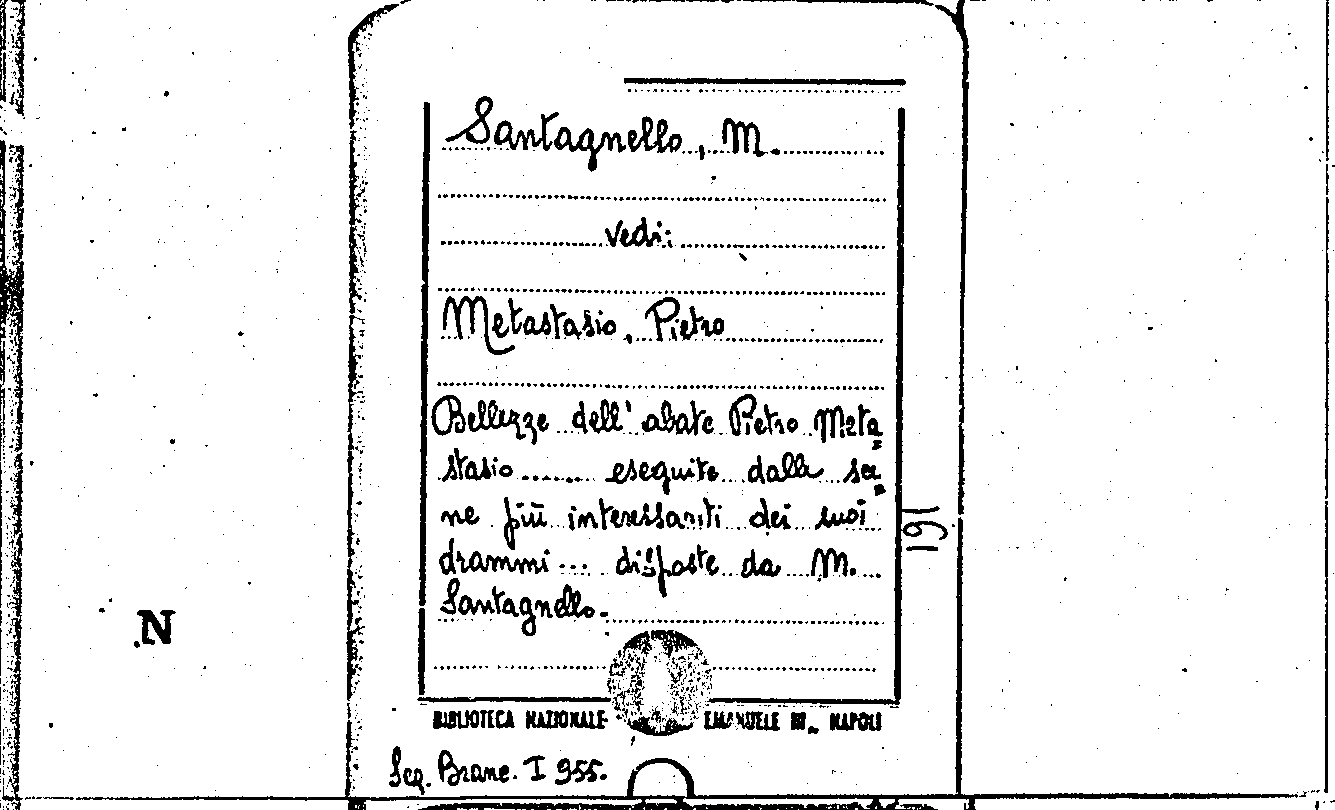 Santagnello, M.
vedi:
Metastasio, Pietro
Bellezze dell'abate Pietro Meta=
stasio....... eseguite dalle sce=
ne più interessanti dei suoi
drammi... disposte da M. ...
Santagnello.
191
N
BIBLIOTECA NAZIONALE EMANUELE III., NAPOLI
Seq. Branc. I 955.